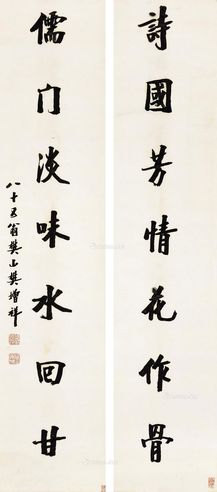 詩國芳情花作骨
儒门淡味水回甘
八十五翁樊山樊增祥